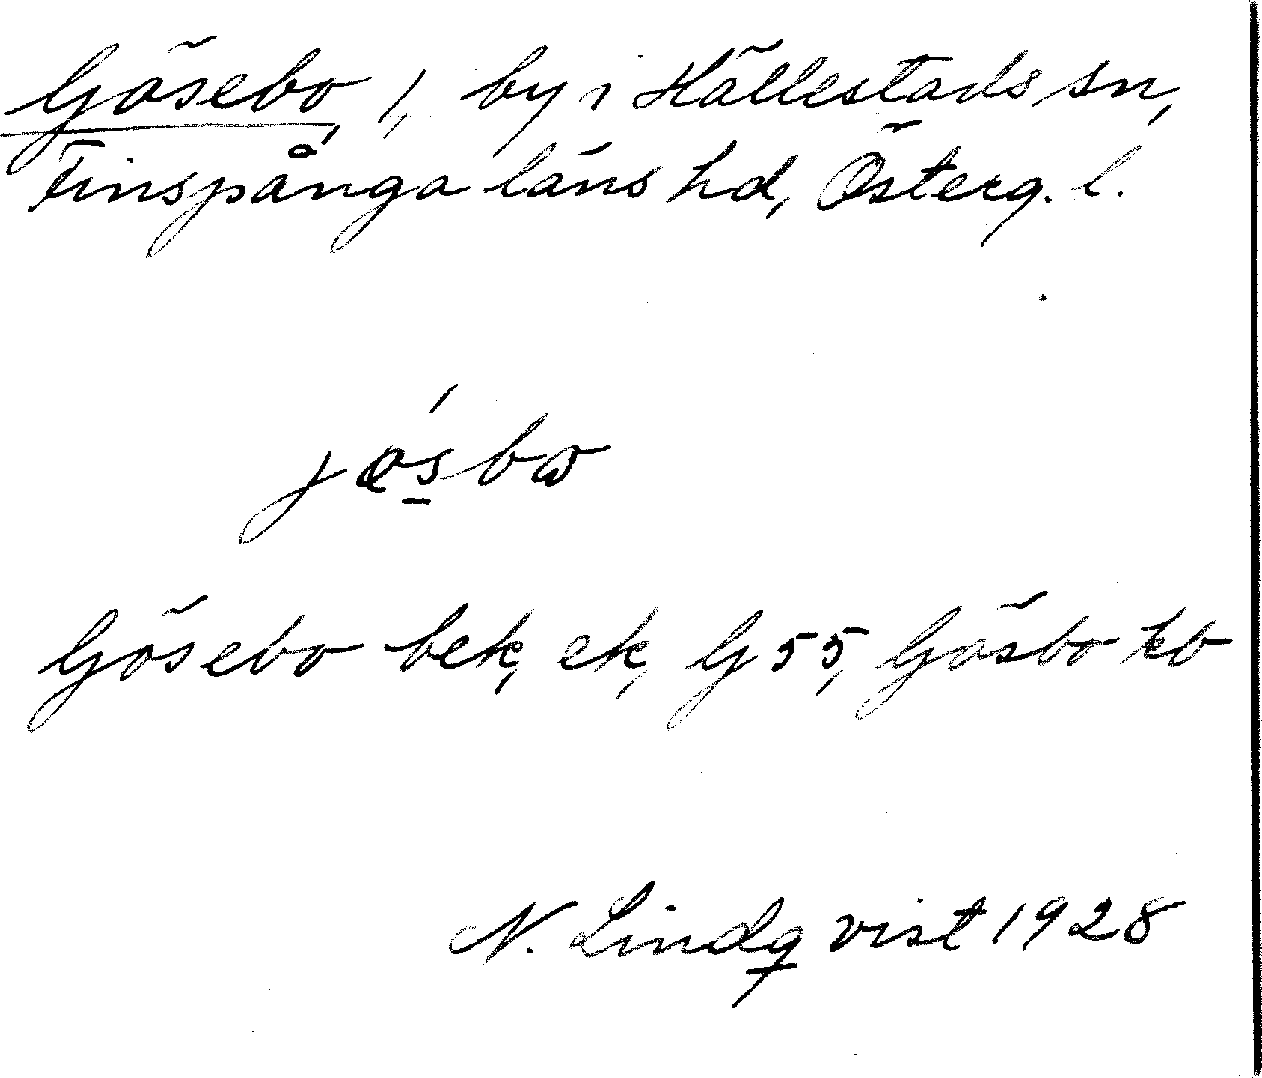 Gösebo, 1, by i Hällestads sn,
Finspånga läns hd, Österg. l.
Gösebo bek, ek, G 55, Gösbo kb
N. Lindqvist 1928